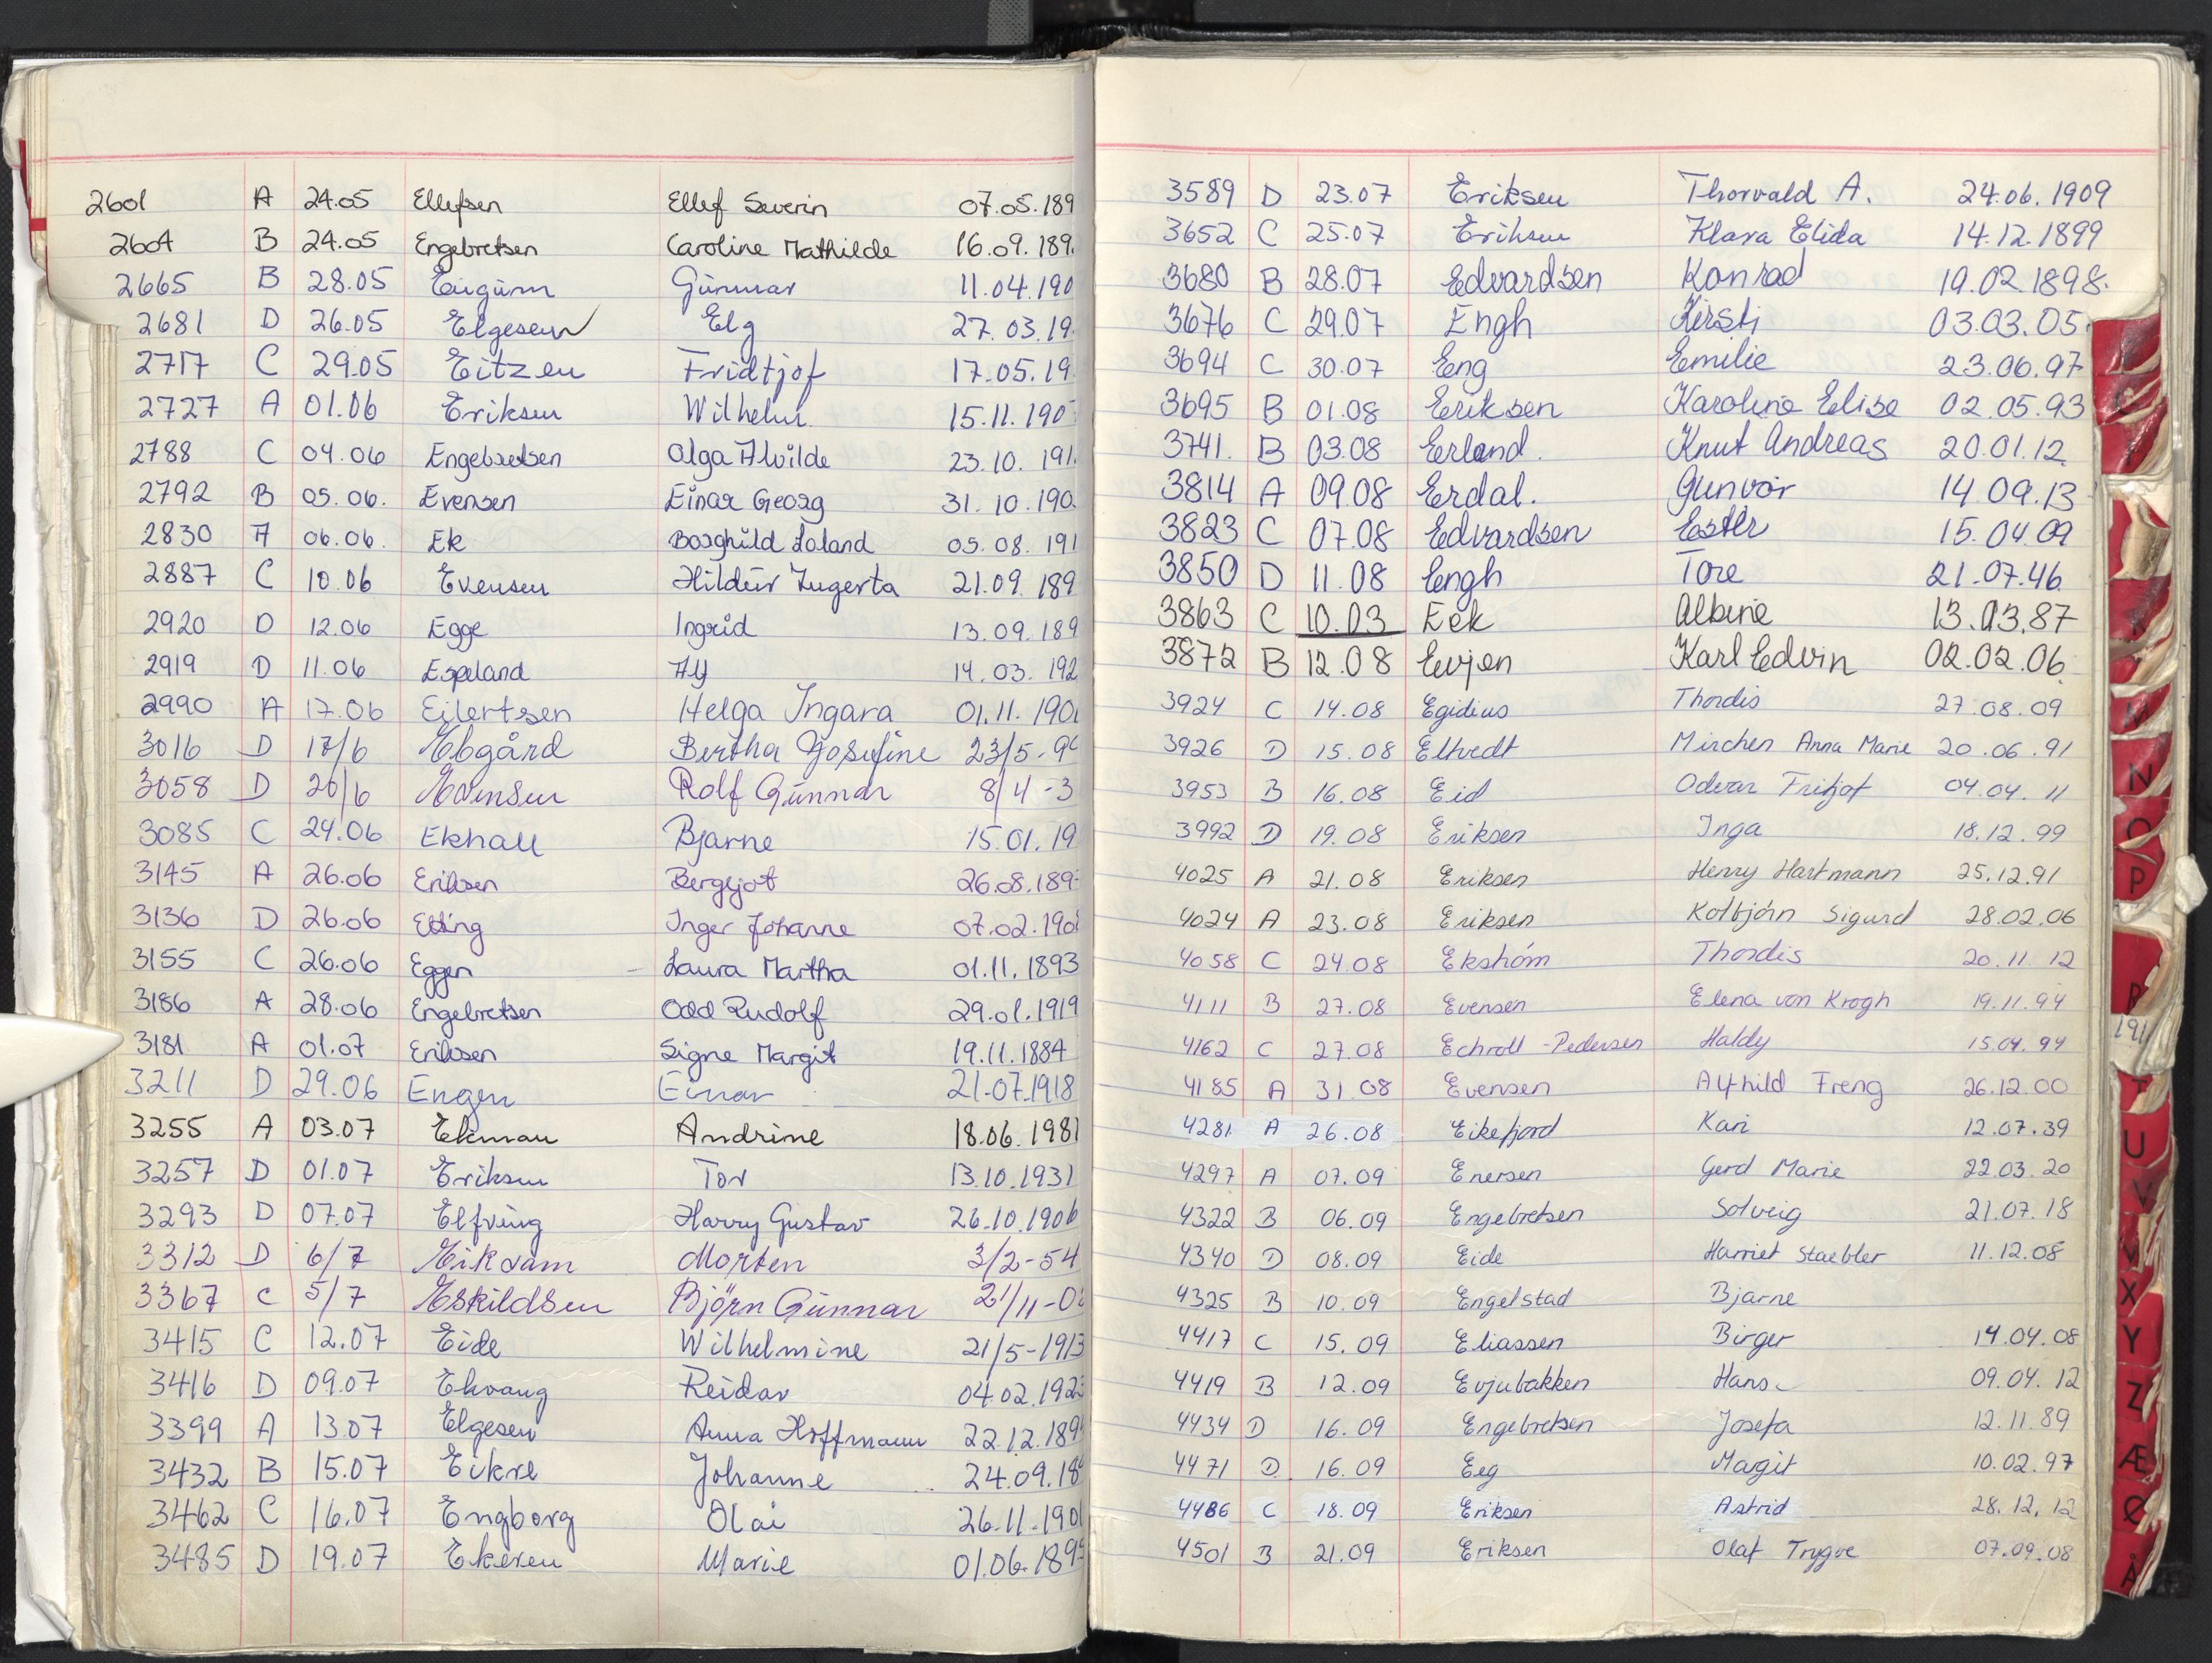 2601 A 24.05 Ellefsen Ellef Severin 07.05.189
2604 B 24.05 Engebretsen Caroline Mathilde 16.09.189
2665 B 28.05 Gunnar 11.04.190
2681 D 26.05 Elgesem Elg 27.03.19
2717 C 29.05 Eitzen Fridtjof 17.05.19
2727 A 01.06 Eriksen Wilhelm 15.11.190
2788 C 04.06 Engebretsen Olga Alvilde 23.10.191
2792 B 05.06. Evensen Einar Georg 31.10.190
2830 A 06.06. Ek Borghild Loland 05.08.191
2887 C 10.06 Evensen Hildur Ingerta 21.09.189
2920 D 12.06 Egge Ingrid 13.09.189
2919 D 11.06 Espeland Alf 14.03.192
2990 A 17.06 Eilertsen Helga Ingara 01.11.190
3016 D 17/6 Ebgård Bertha Josefine 23/5-9
3058 D 20/6 Evensen Rolf Gunnar 8/4-3
3085 C 24.06 Ekhall Bjarne 15.01.19
3145 A 26.06 Eriksen Bergljot 26.08.189
3136 D 26.06 Etting Inger Johanne 07.02.190
3155 C 26.06 Eggen Laura Martha 01.11.1893
3186 A 28.06 Engebretsen Odd Rudolf 29.01.1919
3181 A 01.07 Eriksen Signe Margit 19.11.1884
3211 D 29.06 Engen Einar 21.07.1918
3255 A 03.07 Ekman Andrine 18.06.1981
3257 D 01.07 Eriksen Tor 13.10.1931
3293 D 07.07 Elfving Harry Gustav 26.10.1906
3312 D 6/7 Eikdam Morten 3/2-54
3367 C 5/7 Eskildsen Björn Gunnar 21/11-0
3415 C 12.07 Eide Wilhelmine 21/5-1913
3416 D 09.07 Ekvang Reidar 04.02.192
3399 A 13.07 Elgesen Anna Hoffmann 22.12.189
3432 B 15.07 Eikre Johanne 24.09.18
3462 C 16.07 Engborg Olai 26.11.190
3485 D 19.07 Ekeren Marie 01.06.189
3589 D 23.07 Eriksen Thorvald A. 24.06.1909
3652 C 25.07 Eriksen Klara Elida 14.12.1899
3680 B 28.07 Edvardsen Konrad 19.02.1898.
3676 C 29.07 Engh Kirsti 03.03.05.
3694 C 30.07 Eng Emilie 23.06.97
3695 B 01.08 Eriksen Karoline Elise 02.05.93
3741. B 03.08 Erland. Knut Andreas 20.01.12
3814 A 09.08 Erdal. Gunvor 14.09.13
3823 C 07.08 Edvardsen Ester 15.04.09
3850 D 11.08 Engh Tore 21.07.46
3863 C 10.03 Eek Albine 13.03.87
3872 B 12.08 Evjen Karl Edvin 02.02.06
3924 C 14.08 Egidius Thordis 27.08.09
3926 D 15.08 Eltvedt Mirchen Anna Marie 20.06.91
3953 B 16.08 Eid Odvar Fritjof 04.04.11
3992 D 19.08 Eriksen Inga 18.12.99
4025 A 21.08 Eriksen Henry Hartmann 25.12.91
4024 A 23.08 Eriksen Kolbjörn Sigurd 28.02.06
4058 C 24.08 Ekshöm Thordis 20.11.12
4111 B 27.08 Evensen Elena von Krogh 19.11.94
4162 C 27.08 Echroll-Pedersen Haldy 15.04.94
4185 A 31.08 Evensen Alfhild Freng 26.12.00
4281 A 26.08 Eikefjord Kari 12.07.39
4297 A 07.09 Enersen Gerd Marie 22.03.20
4322 B 06.09 Engebretsen Solveig 21.07.18
4340 D 08.09 Eide Harriet Staebler 11.12.08
4325 B 10.09 Engelstad Bjarne
4417 C 15.09 Eliassen Birger 14.04.08
4419 B 12.09 Evjubakken Hans 09.04.12
4434 D 16.09 Engebretsen Josefa 12.11.89
4471 D 16.09 Eeg Margit 10.02.97
4486 C 18.09 Eriksen Astrid 28.12.12
4501 B 21.09 Eriksen Olaf Trygve 07.09.08
M
N
O
P
R
191
T
U
V
X
Y
Z
Æ
Ø
Å